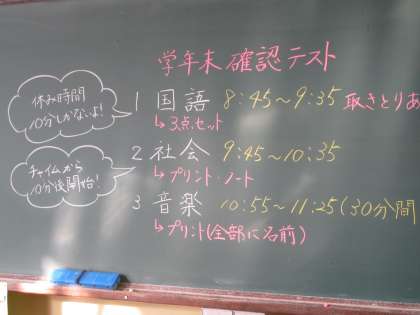 学年末 確認テスト
休み時間
10分しかないよ!
1 国語 8:45~9:35 聞きとりあ
↳3点セット
チャイムから
10分後開始!
2 社会 9:45~10:35
↳プリント・ノート
3 音楽 10:55~11:25(30分間
↳プリント(全部に名前)